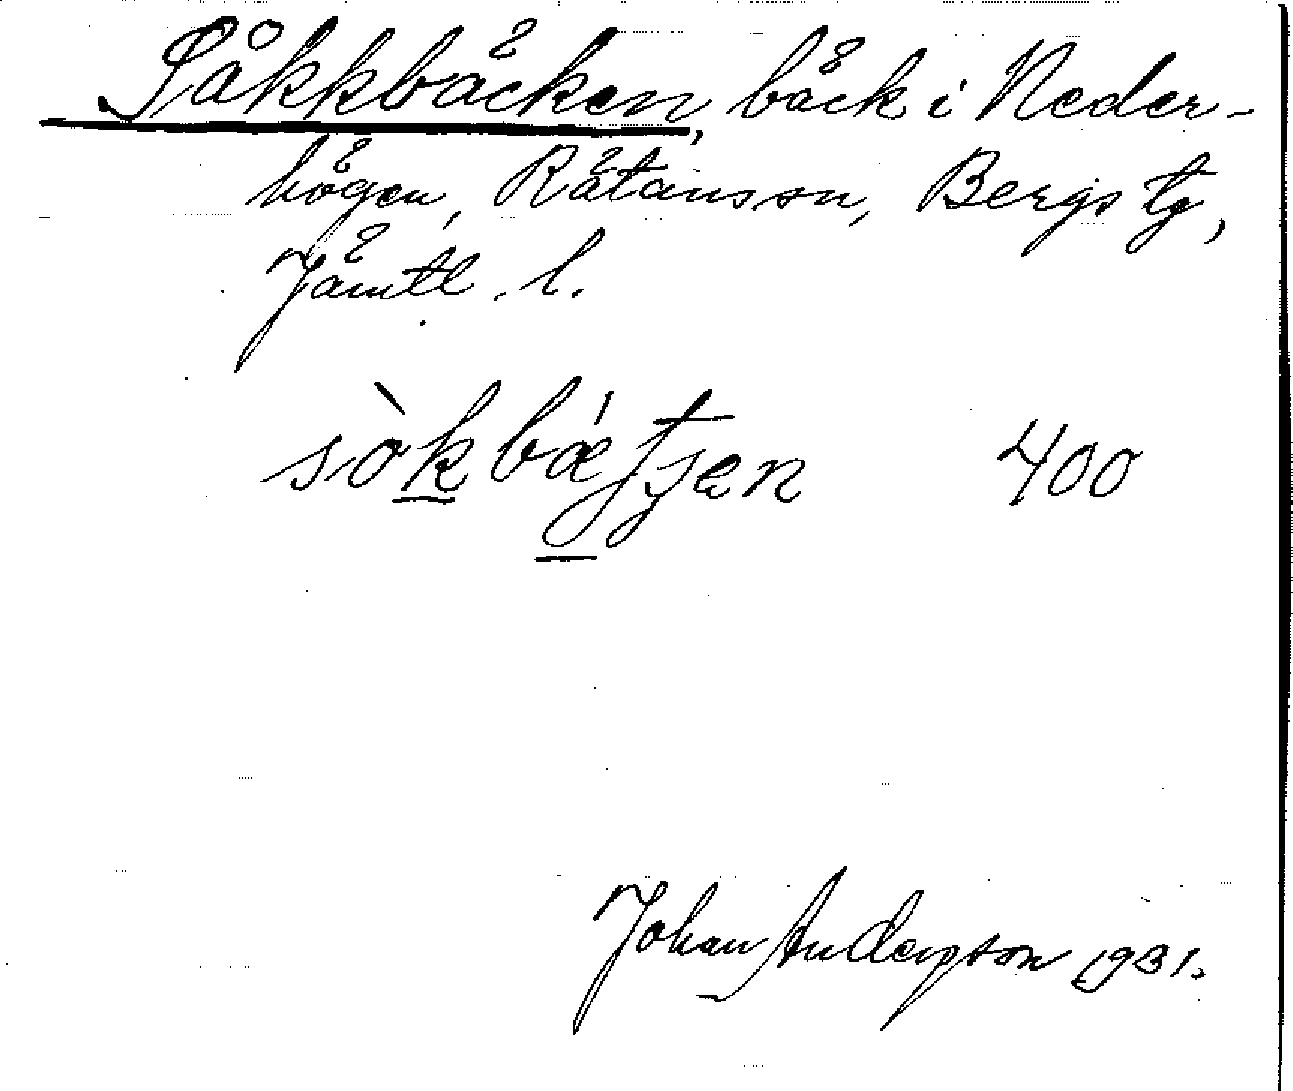 Såkkbäcken, bäck i Neder-
högen, Rätans sn, Bergs tg,
Jämtl. l.
sòkbǽʃʒen 400
Johan Anderson 1931.